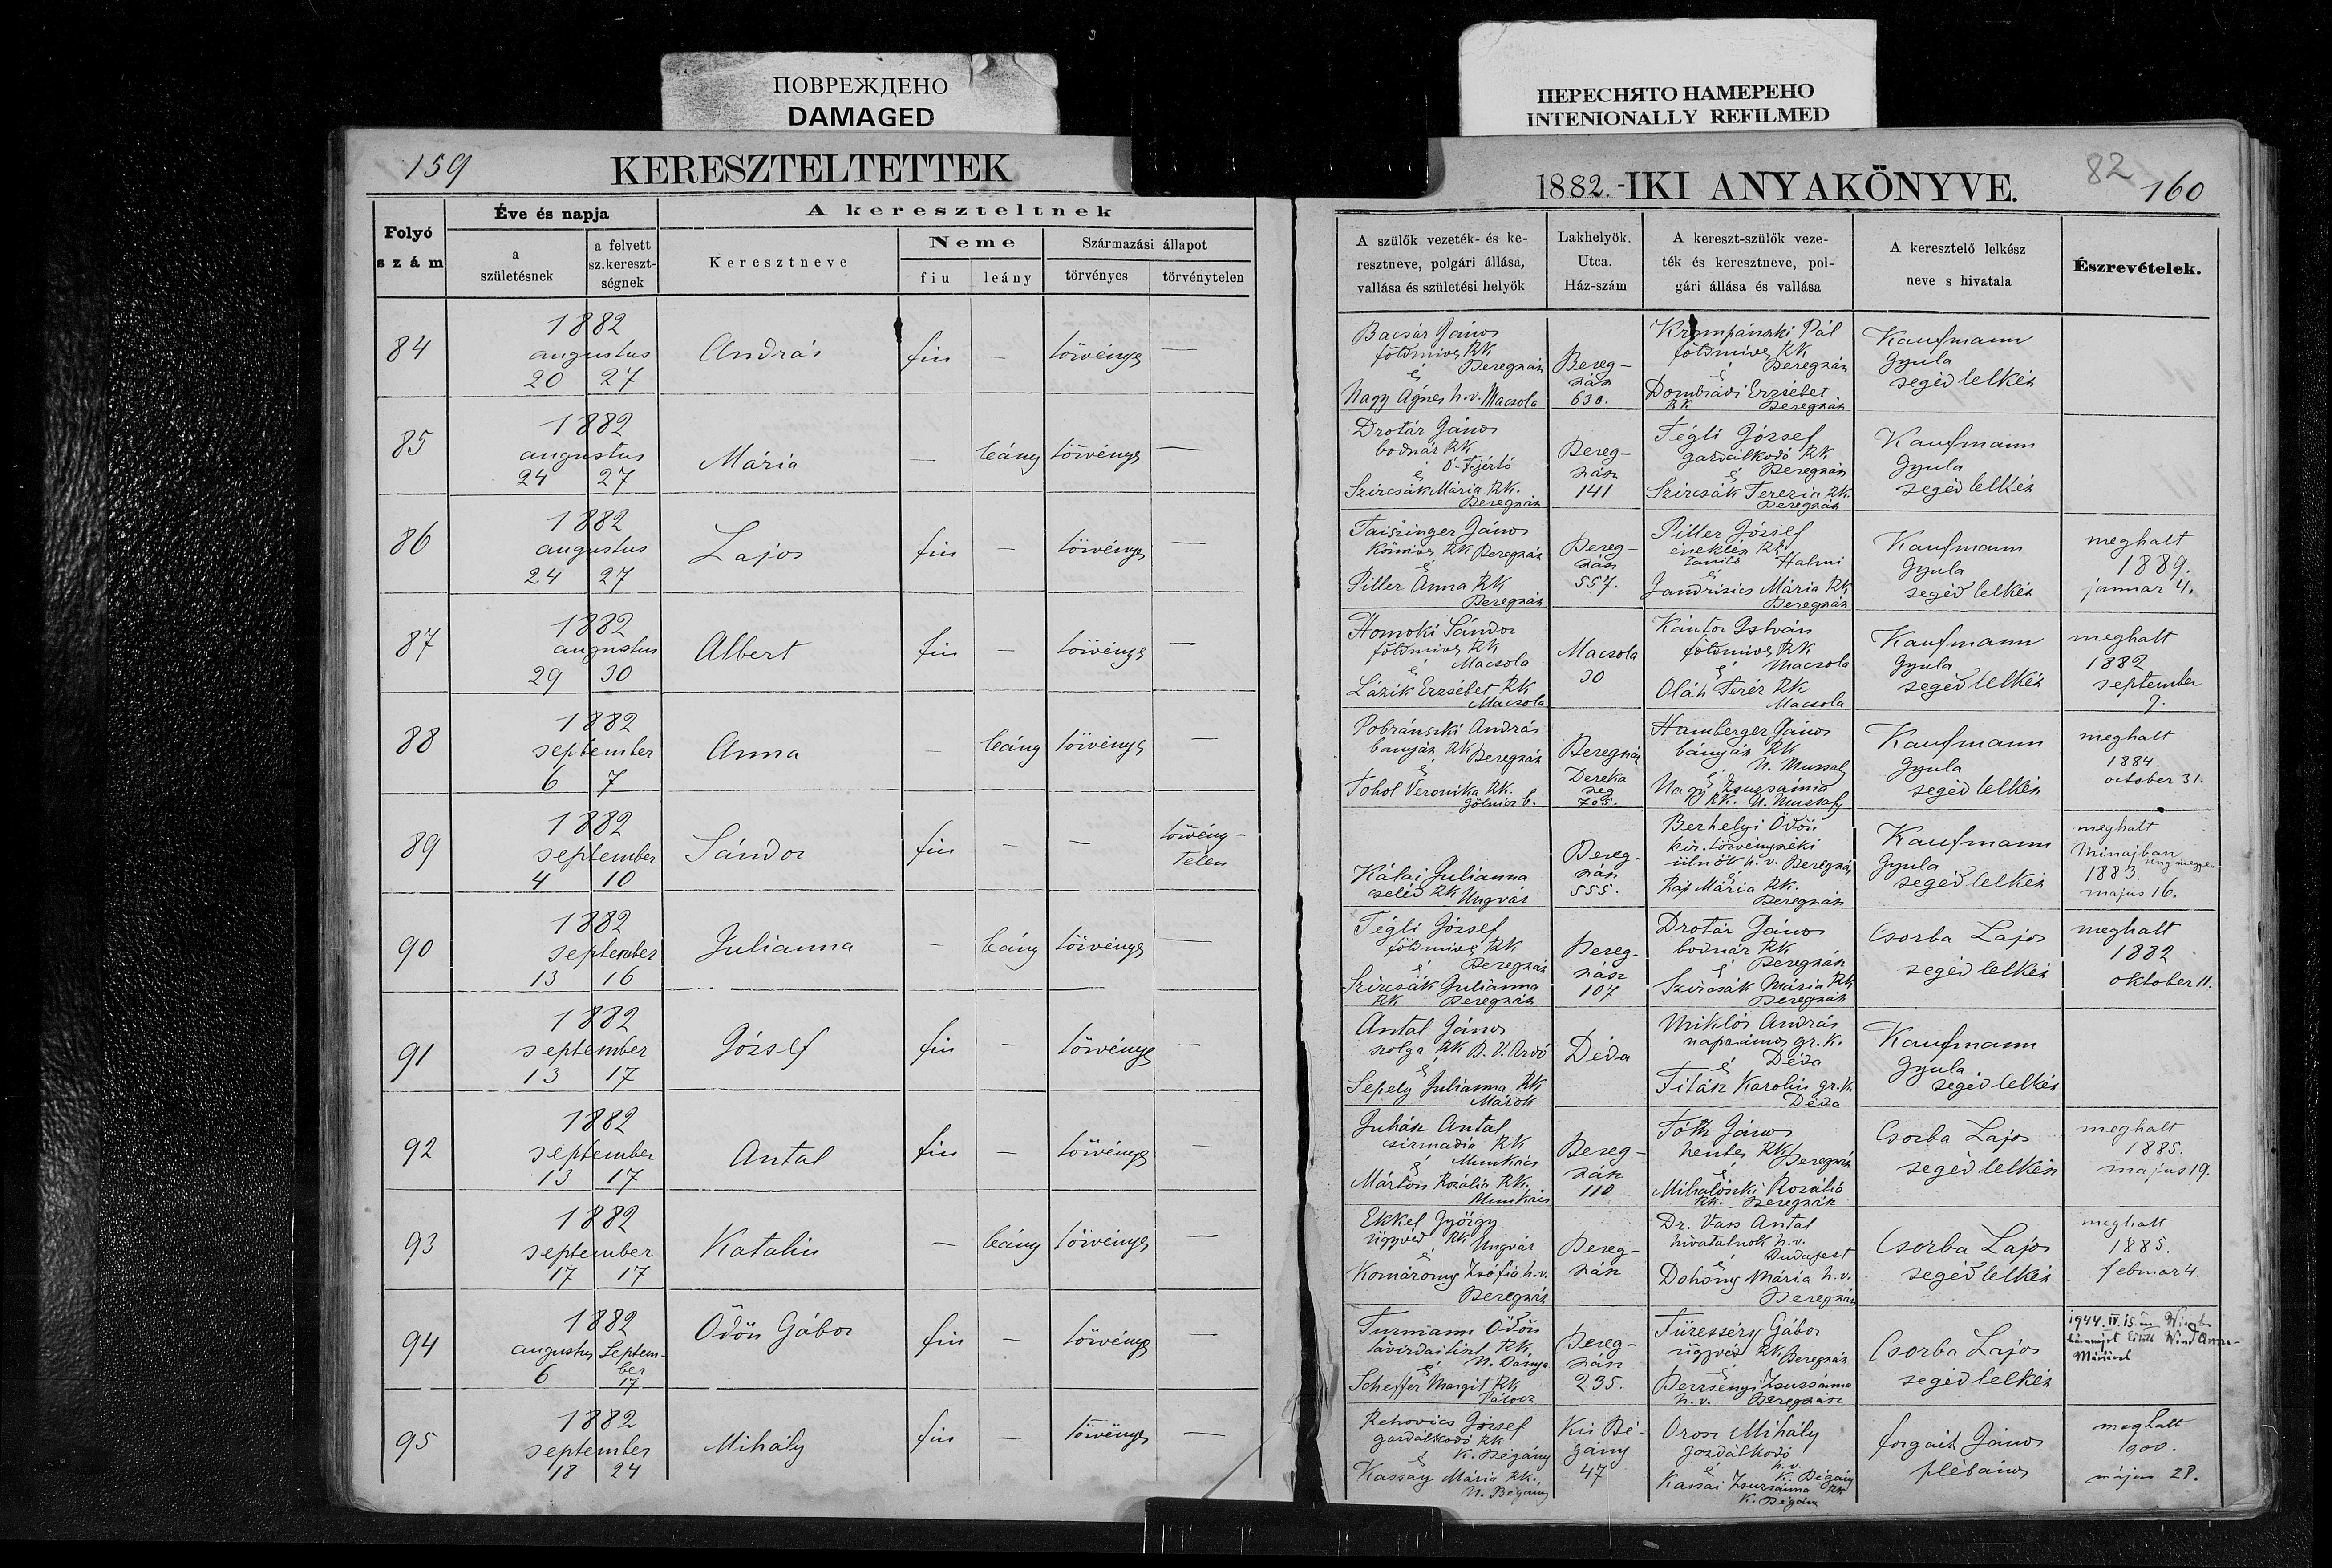 ПОВРЕЖДЕНО
DAMAGED
ПЕРЕСНЯТО НАМЕРЕНО
INTENIONALLY REFILMED
159
KERESZTELTETTEK
1882.-IKI ANYAKÖNYVE.
82
160
Folyó
szám
Éve és napja
a
születésnek
a felvett
sz.kereszt-
ségnek
A kereszteltnek
Keresztneve
Neme
fiu
leány
Származási állapot
törvényes
törvénytelen
A szülők vezeték- és ke-
resztneve, polgári állása,
vallása és születési helyök
Lakhelyök.
Utca.
Ház-szám
A kereszt-szülők veze-
ték és keresztneve, pol-
gári állása és vallása
A keresztelő lelkész
neve s hivatala
Észrevételek.
84
1882
augustus
20 27
András
fiu
—
törvényes
—
Bacsár János
földmives RK
Beregszász
és
Nagy Ágnes h.v. Macsola
Bereg-
szász
630.
Krompánszki Pál
földmives RK
és Beregszász
Dombrádi Erzsébet
RK. Beregszász
Kaufmann
Gyula
segédlelkész
85
1882
augustus
24 27
Mária
—
leány
törvényes
—
Drotár János
bodnár RK
és Ó-Fejértó
Szircsák Mária RK.
Beregszász
Bereg-
szász
141
Tégli József
gazdálkodó RK
és Beregszász
Szircsák Terezia RK.
Beregszász
Kaufmann
Gyula
segédlelkész
86
1882
augustus
24 27
Lajos
fiu
—
törvényes
—
Taiszinger János
Kőmives RK Beregszász
és
Piller Anna RK
Beregszász
Bereg-
szász
557.
Piller József
éneklész RK
tanitó Halmi
és
Jandrisics Mária RK
Beregszász
Kaufmann
Gyula
segédlelkész
meghalt
1889.
januar 4.
87
1882
augustus
29 30
Albert
fiu
—
törvényes
—
Homoki Sándor
földmives RK
és Macsola
Lázik Erzsébet RK
Macsola
Macsola
30
Kántor István
földmives RK
és Macsola
Oláh Teréz RK
Macsola
Kaufmann
Gyula
segédlelkész
meghalt
1882
september
9.
88
1882
september
6 7
Anna
—
leány
törvényes
—
Pobránszki András
bányász RK
és Beregszász
Tohol Veronika RK.
Gölnicz b.
Beregszász
Dereka
szeg
Hamberger János
bányász RK
és N. Muzsaly
Nagy Zsuzsánna
RK. N. Muzsaly
Kaufmann
Gyula
segédlelkész
meghalt
1884.
october 31.
89
1882
september
4 10
Sándor
fiu
—
—
törvény-
telen
Kálai Julianna
cseléd RK Ungvár
Bereg-
szász
555.
Berhelyi Ödön
kir. törvényszéki
ülnök h.v. Beregszász
és
Mária RK.
Beregszász
Kaufmann
Gyula
segédlelkész
meghalt
Minajban
Ung megye
1883.
majus 16.
90
1882
september
13 16
Julianna
—
leány
törvényes
—
Tégli József
földmives RK
és Beregszász
Szircsák Julianna
RK Beregszász
Bereg-
szász
107
Drotár János
bodnár RK
és Beregszász
Szircsák Mária RK
Beregszász
Csorba Lajos
segédlelkész
meghalt
1882
oktober 11.
91
1882
september
13 17
József
fiu
—
törvényes
—
Antal János
szolga RK B. V. Ardó
és
Sepely Julianna RK
Márok
Déda
Miklós András
napszámos gr. k.
és Déda
Titász Karolin gr. k.
Déda
Kaufmann
Gyula
segédlelkész
92
1882
september
13 17
Antal
fiu
—
törvényes
—
Juhász Antal
csizmadia RK
és Munkács
Márton Rozália RK.
Munkács
Bereg-
szász
110
Tóth János
hentes RK Beregszász
és
Mihalószki Rozália
RK. Beregszász
Csorba Lajos
segédlelkész
meghalt
1885.
majus 19.
93
1882
september
17 17
Katalin
—
leány
törvényes
—
Ekkel György
ügyvéd RK Ungvár
és
Komáromy Zsófia h.v.
Beregszász
Bereg-
szász
Dr. Vass Antal
hivatalnok h.v.
és Budapest
Dohony Mária h.v.
Beregszász
Csorba Lajos
segédlelkész
meghalt
1885.
februar 4.
94
1882
augustus Septem-
6 ber
17
Ödön Gábor
fiu
—
törvényes
—
Turmann Ödön
távirdatiszt RK.
és
Scheffer Margit RK
Pálócz
Bereg-
szász
235.
Füzesséry Gábor
ügyvéd RK Beregszász
és
Perzsényi Zsuzsánna
h.v. Beregszász
Csorba Lajos
segédlelkész
1944. IV. 15.
Wind Anna-
Máriával
95
1882
september
18 24
Mihály
fiu
—
törvényes
—
Rehovics József
gazdálkodó RK
és K. Bégány
Kassay Mária RK.
N. Bégány
Kis Bé-
gány
47
Orosz Mihály
gazdálkodó
h.v.
és K. Bégány
Kassai Zsuzsánna RK
K. Bégány
forgait János
plébános
meghalt
május 28.